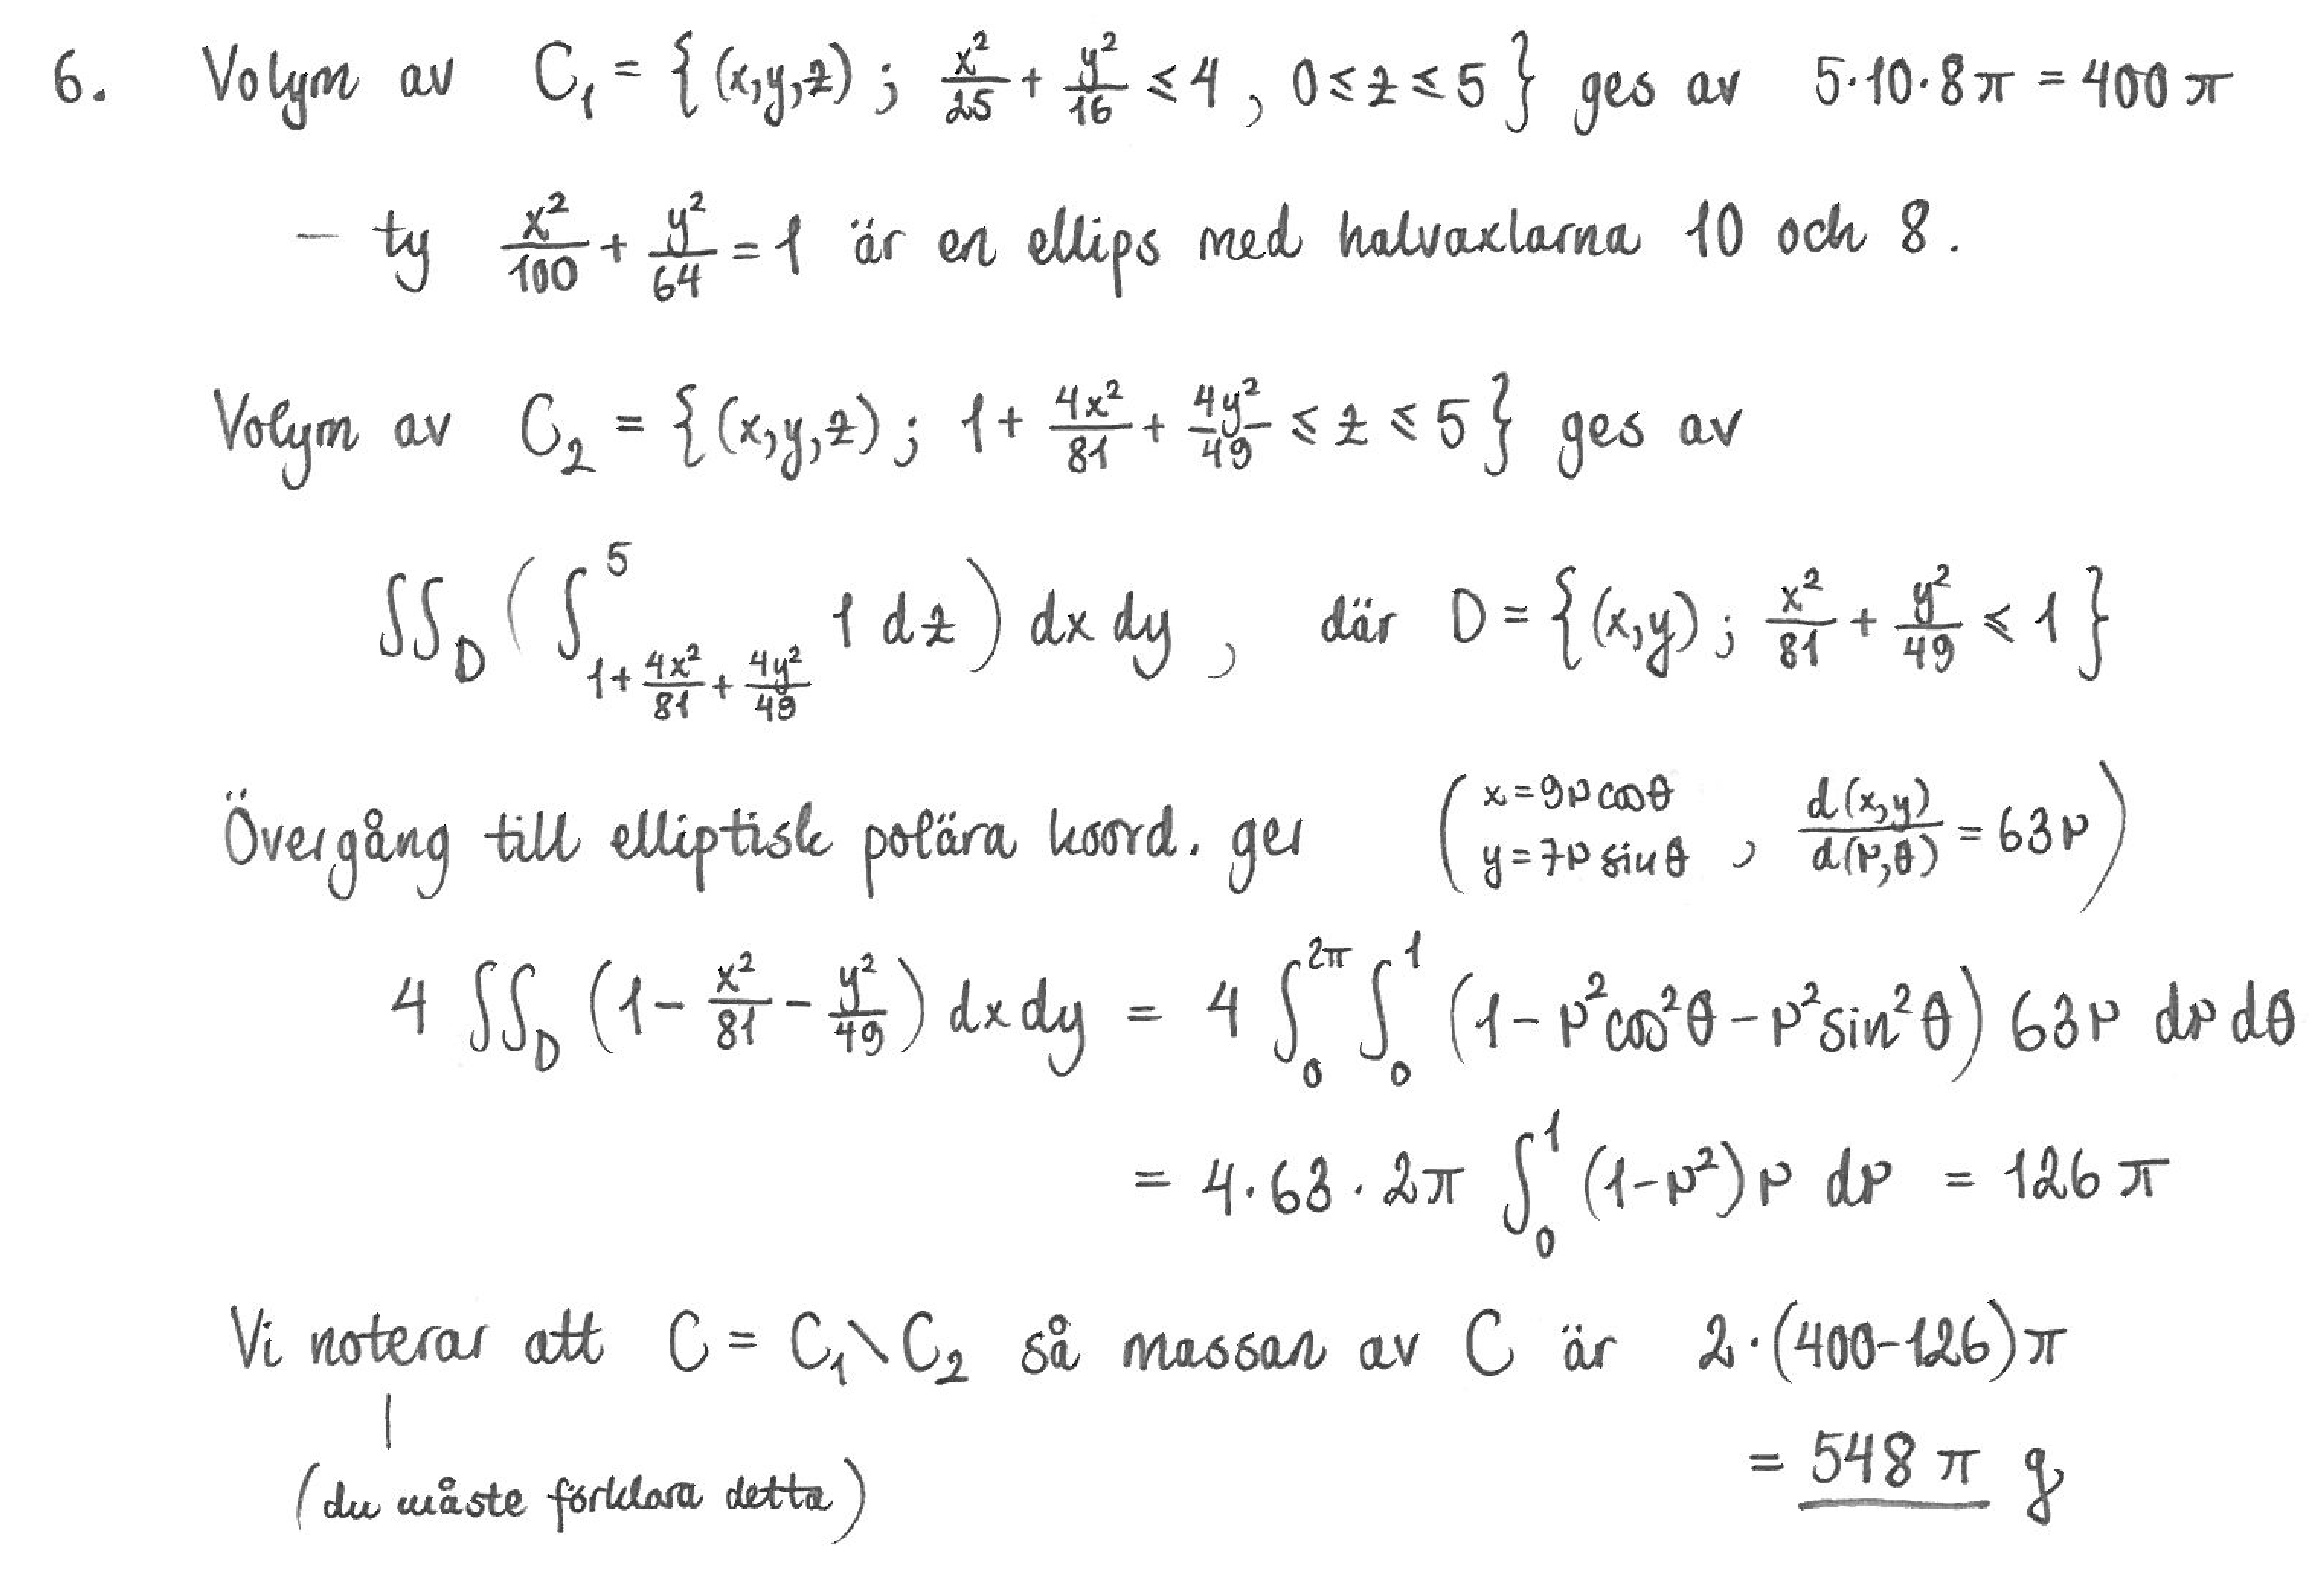 6. Volym av C₁ = { (x,y,z) ; x²/25 + y²/16 ≤ 4 , 0 ≤ z ≤ 5 } ges av 5·10·8π = 400π
– ty x²/100 + y²/64 = 1 är en ellips med halvaxlarna 10 och 8.
Volym av C₂ = { (x,y,z) ; 1 + 4x²/81 + 4y²/49 ≤ z ≤ 5 } ges av
∬_D ( ∫_{1+4x²/81+4y²/49}^5 1 dz ) dx dy , där D = { (x,y) ; x²/81 + y²/49 ≤ 1 }
Övergång till elliptisk polära koord. ger ( x = 9r cosθ y = 7r sinθ , d(x,y)/d(r,θ) = 63r )
4 ∬_D (1 - x²/81 - y²/49) dx dy = 4 ∫_0^{2π} ∫_0^1 (1 - r²cos²θ - r²sin²θ) 63r dr dθ
= 4·63·2π ∫_0^1 (1-r²) r dr = 126π
Vi noterar att C = C₁\C₂ så massan av C är 2·(400-126)π
= 548π g
(du måste förklara detta)